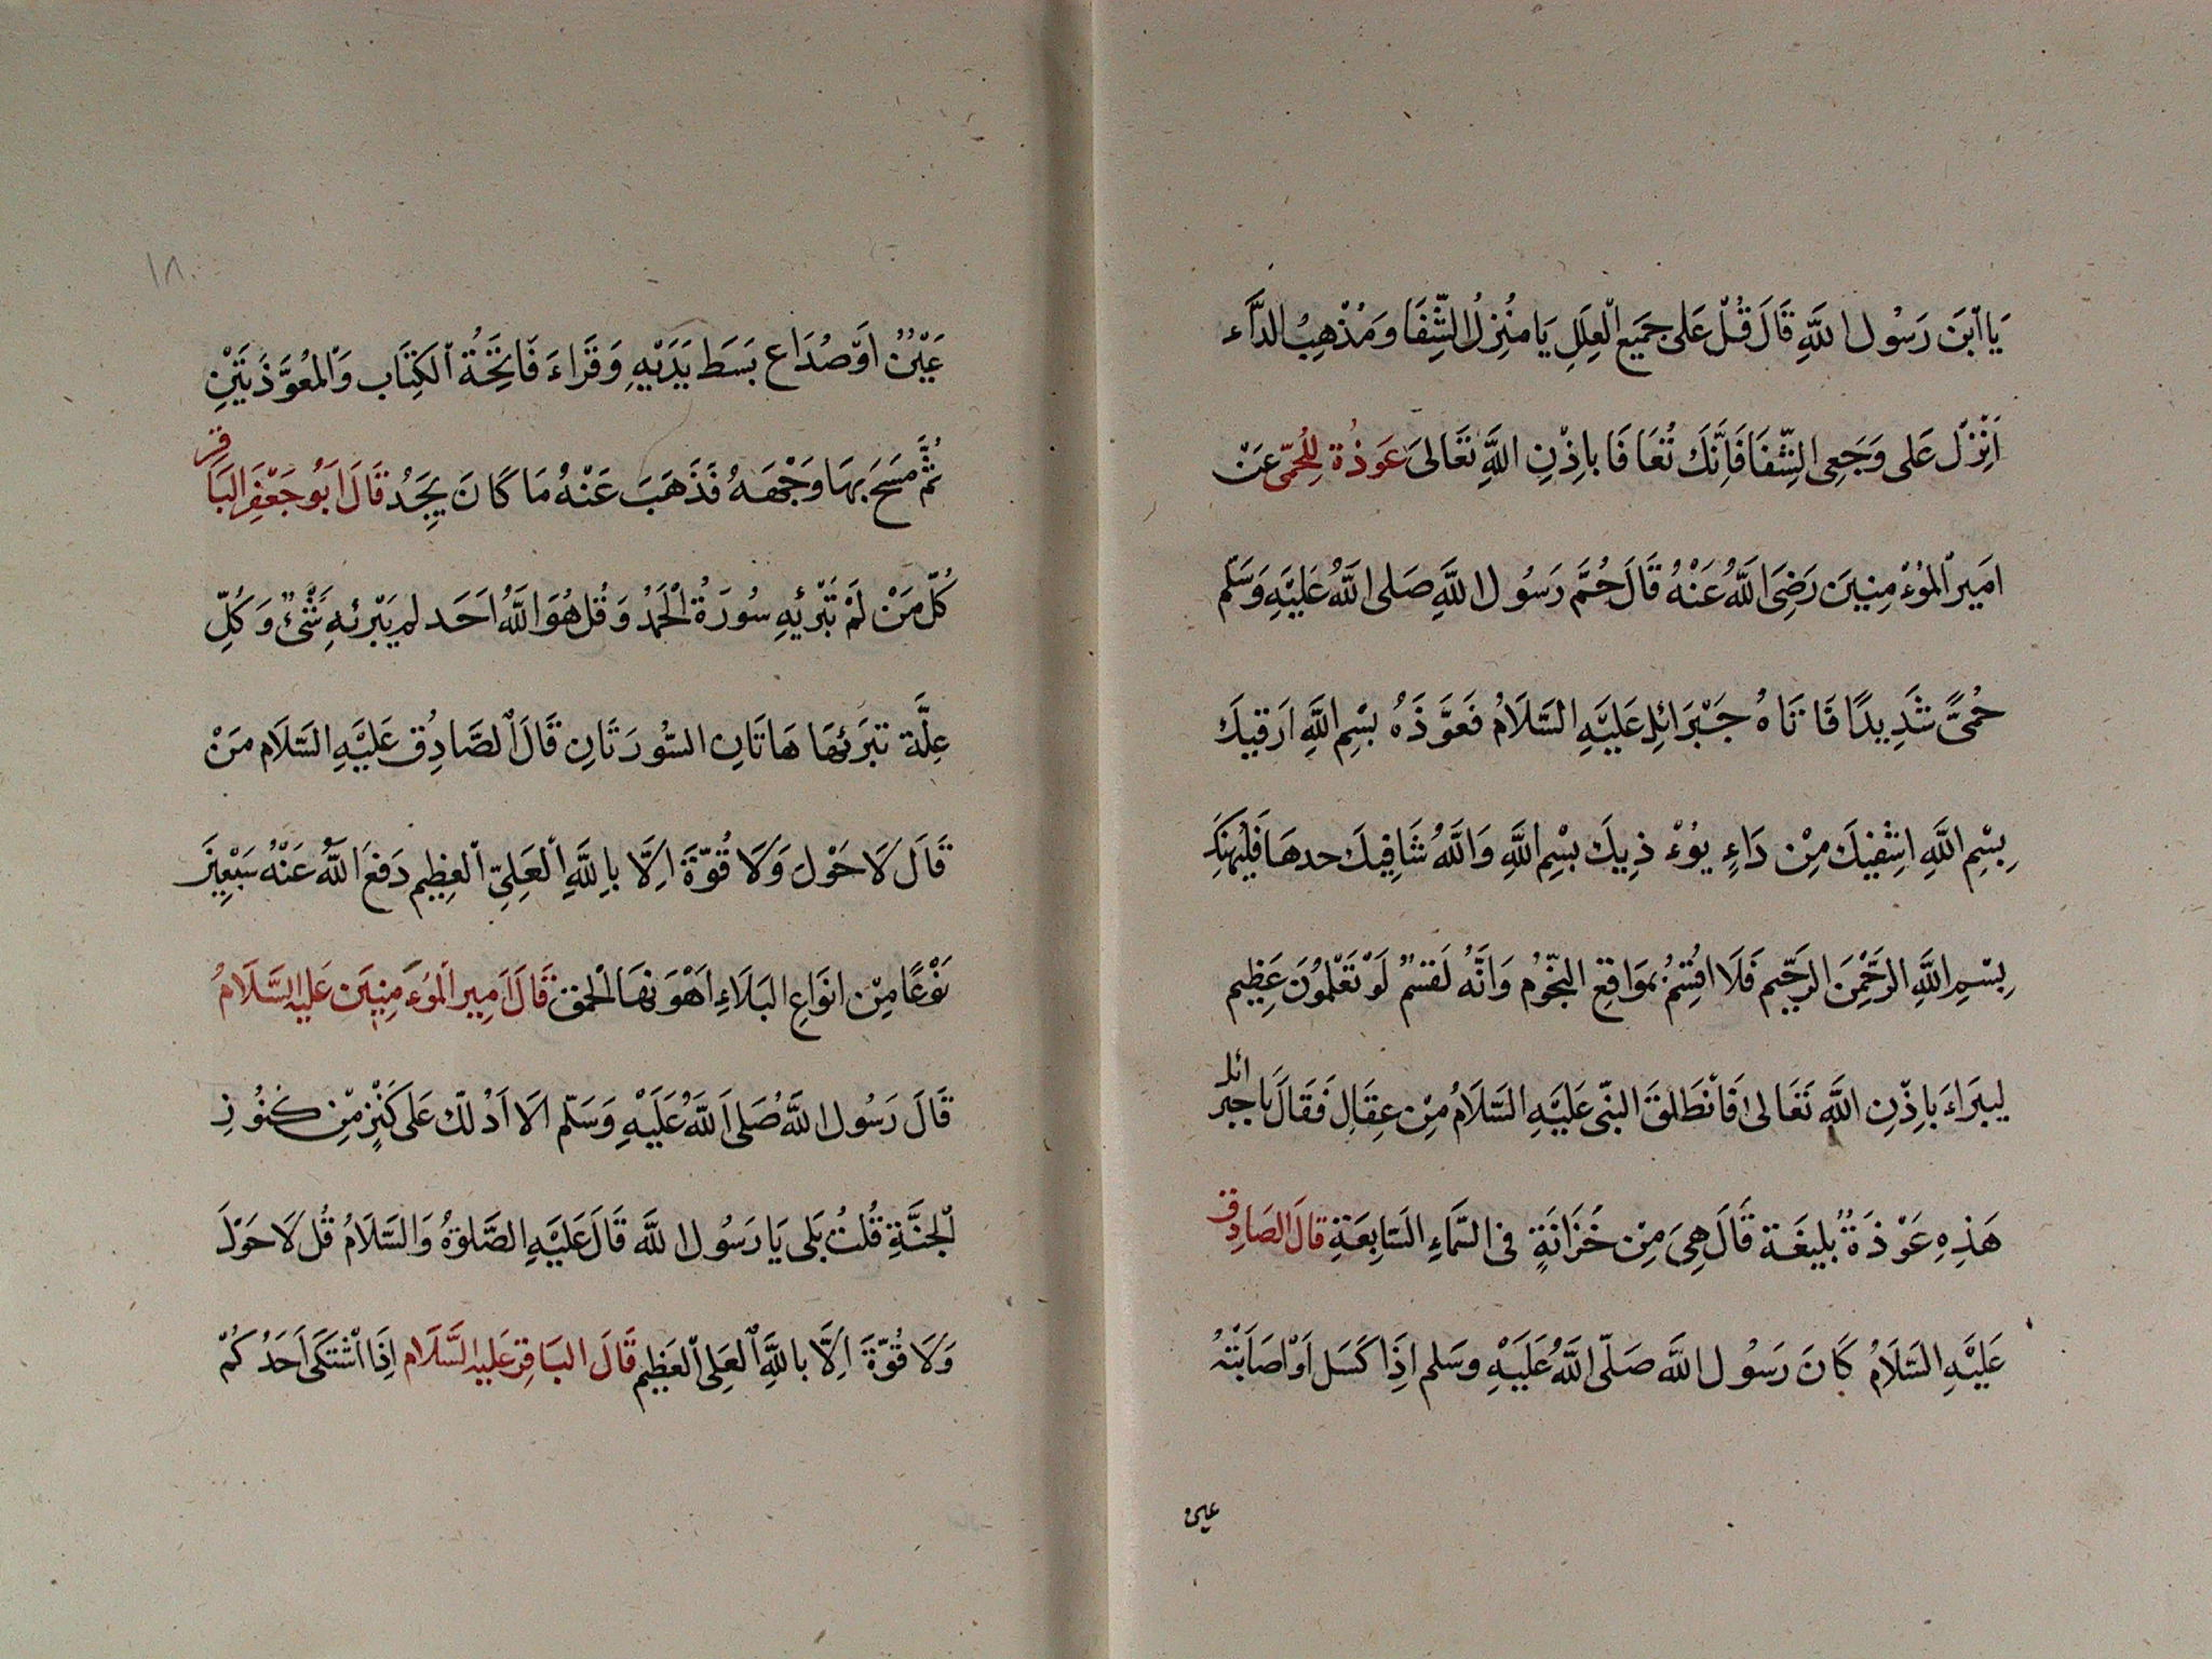 يَا ابْنَ رَسُولِ اللَّهِ قَالَ قُلْ عَلى جَمِيعِ الْعِلَلِ يَا مُنْزِلُ الشِّفَا وَمُذْهِبُ الدَّاء
اَنْزِلْ عَلى وَجَعِى الشِّفَا فَاِنَّكَ تُعَافَا بِاِذْنِ اللَّهِ تَعَالىَ عَوذُة لِلْحُمّى عَنْ
امَيرِ الْمُوْءمِنِينَ رَضِىَ اللَّهُ عَنْهُ قَالَ حُمَّ رَسُول اللَّهِ صَلى اللَّهُ عَلَيْهِ وَسَلّم
حُمىًّ شَدِيدًا فَاتَاهُ جَبْرَائِل عَلَيْهِ السَّلَامُ فَعَوَّذَهُ بِسْمِ اللَّهِ اَرقيكَ
بِسْمِ اللَّهِ اشْفيكَ مِنْ دَاءٍ يُوْءذِيكَ بِسْمِ اللَّهِ وَاللَّهُ شَافِيكَ حدهَا فَلْيَهْنِكَ
بِسْمِ اللَّهِ الرَّحْمنِ الرَّحِيم فَلَا اُقْسِمُ بمَوَاقِعِ النُّجُوُم وَاِنَّهُ لَقَسَمٌ لَوْ تَعْلَمُوُنَ عَظِيم
ليبَراءَ بِاِذْنِ اللَّه تَعَالى فَانْطَلقَ النبّى عَلَيْهِ السَّلَامُ مِنْ عِقَالٍ فَقَالَ يَا جبرائل
هَذِهِ عَوْذَةٌ بَلِيغَة قَالَ هِىَ مِنْ خَزَانَةٍ فى السَّمَاءِ السَّابِعَةِ قَالَ الصَادِق
عَلَيْهِ السَّلَامُ كَانَ رَسُول اللَّه صَلّى اللَّهُ عَلَيْهِ وسَلم اِذَا كَسَلَ اَوْ اصَابَتْهُ
عين
١٨٠
عَيْنٌ اَوْ صُدَاع بَسَطَ يَدَيْهِ وَقَرَاءَ فَاتِحَةُ الكِتَاب وَالْمُعَوَّذَتَيْنِ
ثُمَّ مَسَحَ بِهَا وَجْهَهُ فَذَهَبَ عَنْهُ مَا كَانَ يَجِدُ قَالَ اَبُو جَعْفَرِ البَاقر
كُلّ مَنْ لَمْ تَبْرئيهِ سُورَةُ الْحَمْدُ وَقُل هُوَ اللَّهُ اَحَد لم يَبْرئهِ شْئٌ وَكُلّ
عِلَّة تبرَئهَا هَاتَانِ السُّورَتَانِ قَالَ الصَّادِق عَلَيْهِ السَّلَام مَنْ
قَالَ لَا حَوْلَ وَلَا قُوّةَ اِلَّا بِاللَّهِ الْعَلِىّ الْعَظِيم دَفعَ اللَّهُ عَنْهُ سَبْعِينَ
نَوْعًا مِنْ انوَاعِ البَلَاءِ اَهْوَنهَا الْحمق قَالَ اَمِير الْمُوَءمِنِينَ عَليهِ السَّلَامُ
قَالَ رَسُول اللَّهُ صَلى اللَّهُ عَلَيْهِ وَسَلّم الَا اَدُلّكَ عَلى كَنْزٍ مِّنْ كنُوُزِ
الجَنَّةِ قُلتُ بَلى يَا رَسُول اللَّه قَالَ عَلَيْهِ الصَّلوةُ وَالسَّلَامُ قُل لَا حَوْلَ
وَلَا قُوّةَ اِلَّا بالَّلهِ العَلِى الْعَظِيم قَالَ البَاقِر عَليهِ السَّلَام اِذَا اشْتَكَى اَحَدُكُمْ